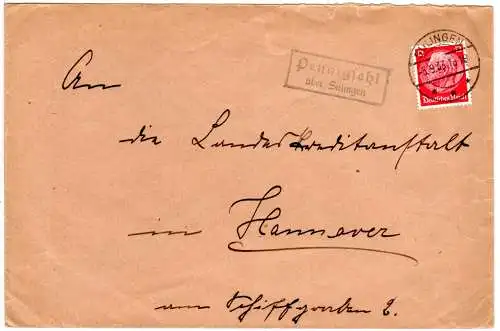 SULINGEN
Pennigsehl
über Sulingen
Deutsches Reich
An
die Landeskreditanstalt
in Hannover
am Schiffgraben 2.